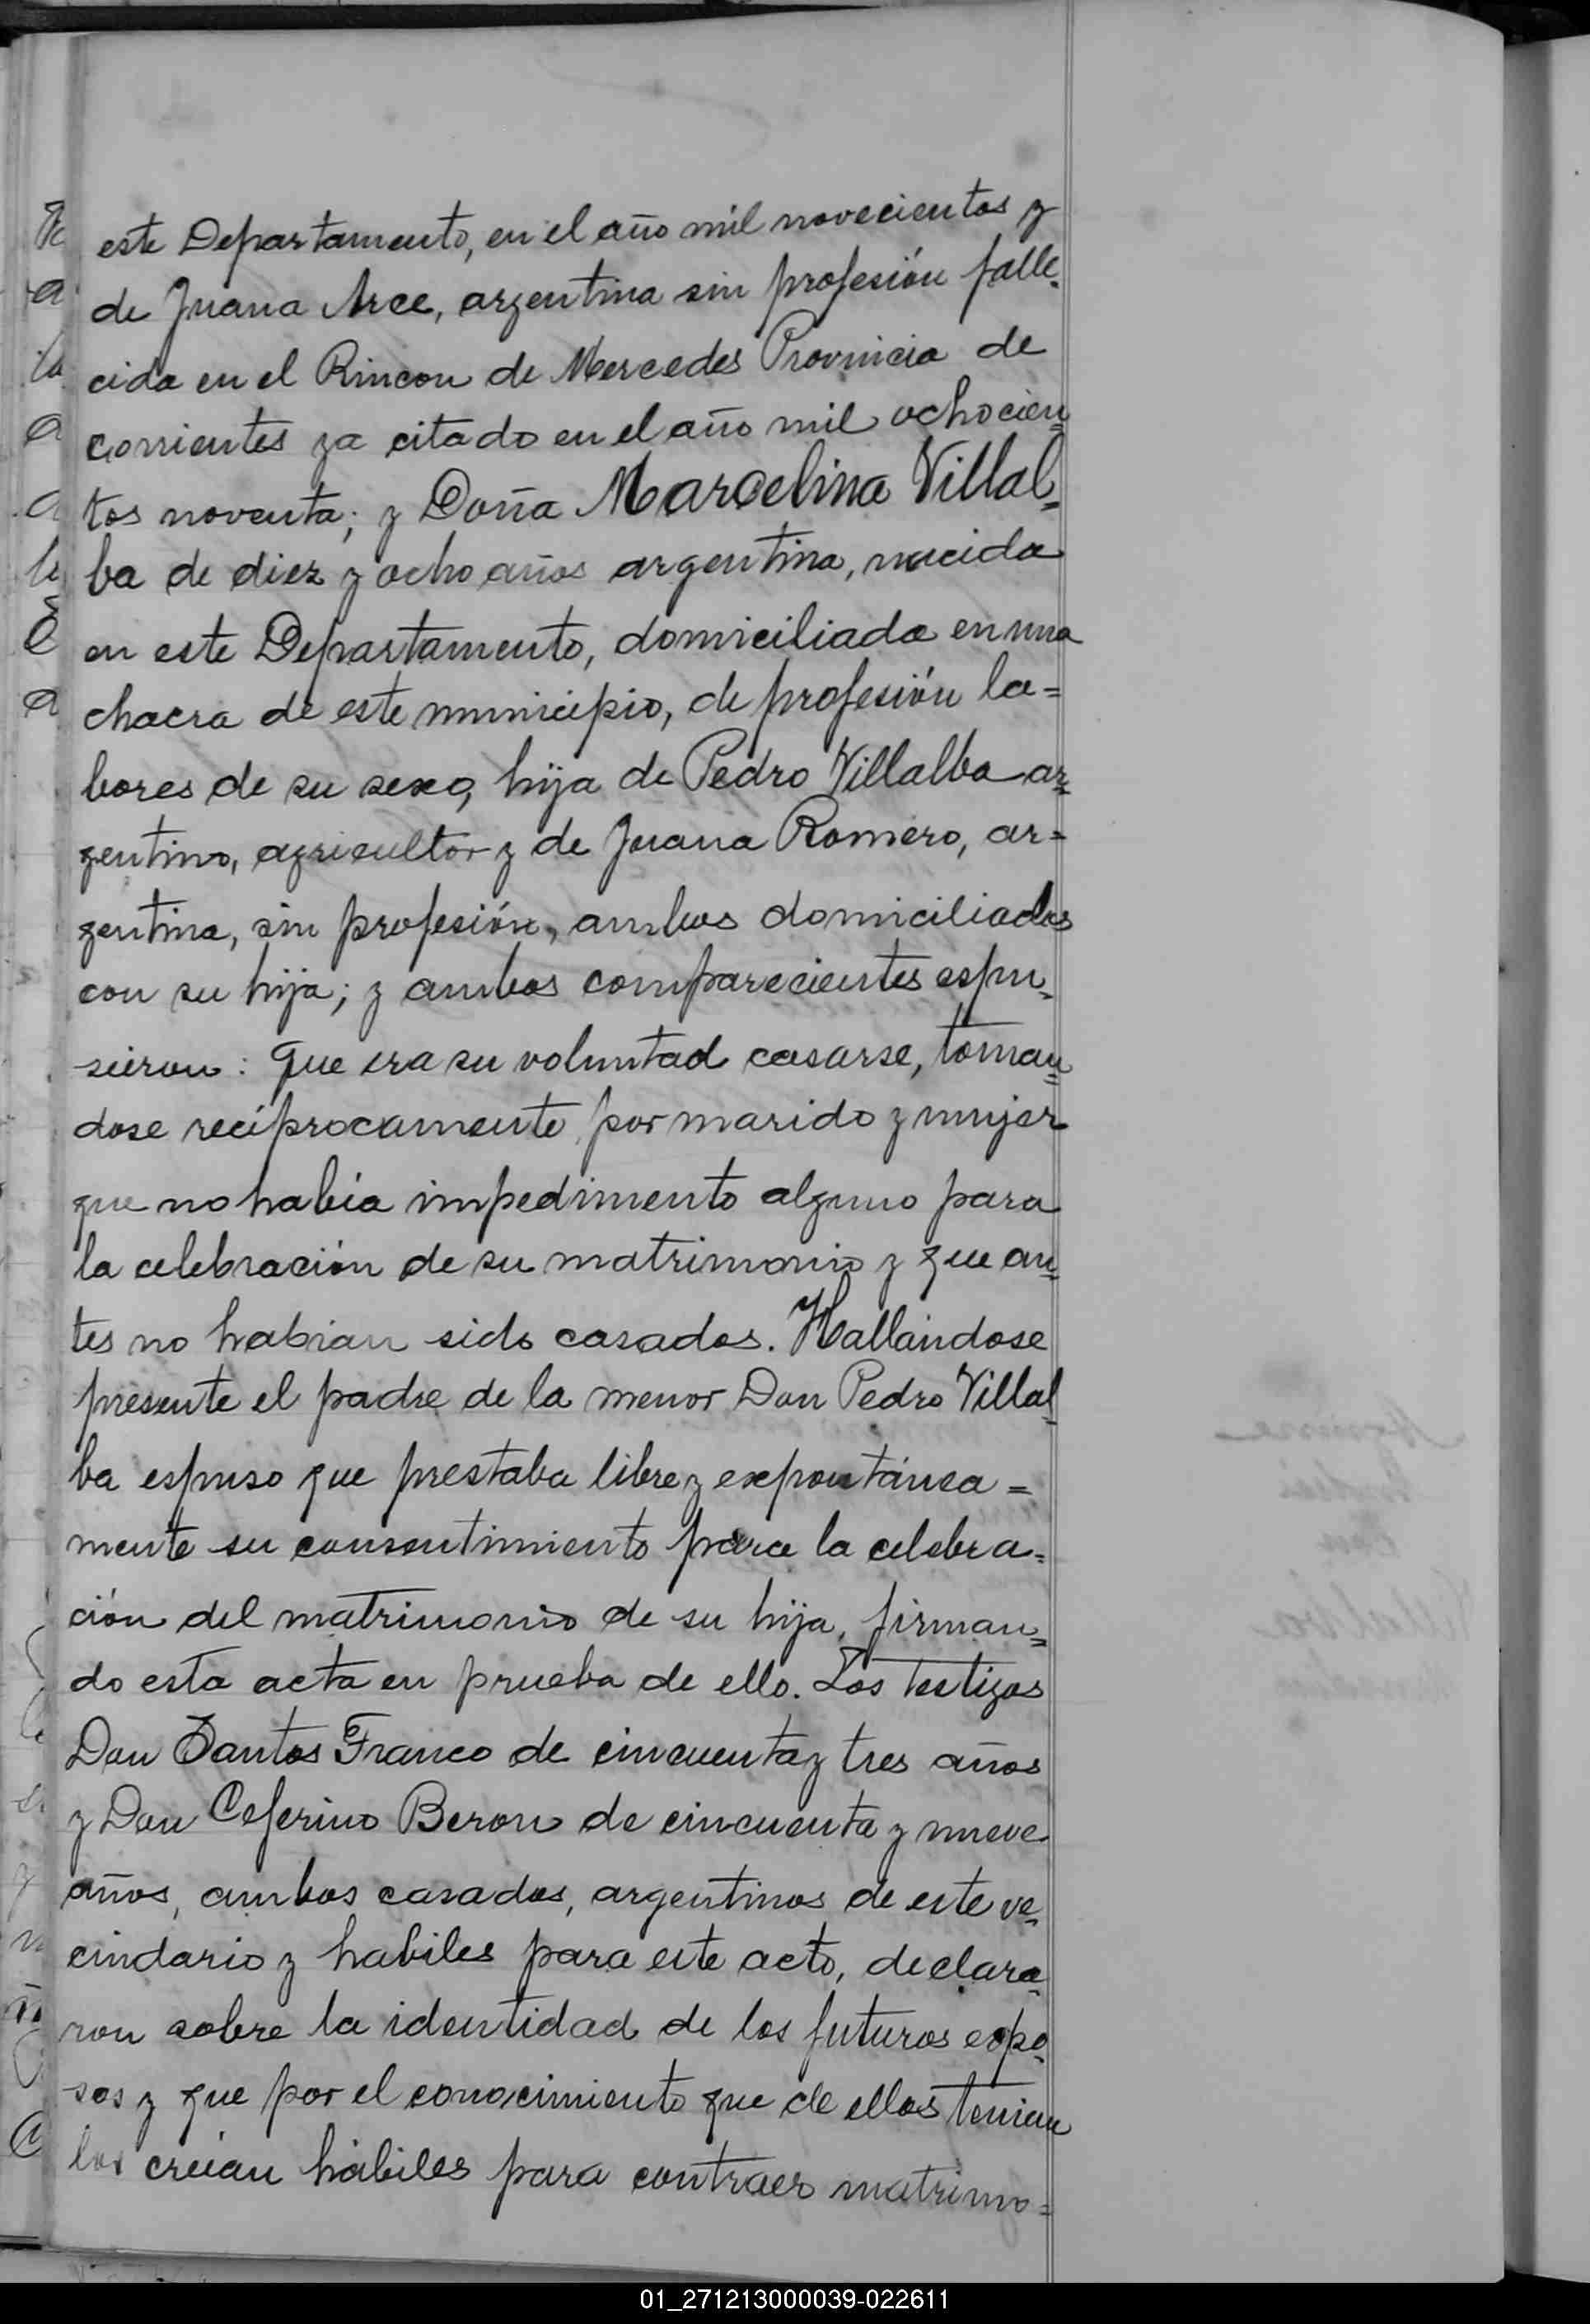 este Departamento, en el año mil novecientos y
de Juana Arce, argentina sin profesión falle-
cida en el Rincon de Mercedes Provincia de
Corrientes ya citado en el año mil ochocien=
tos noventa; y Doña Marcelina Villal=
ba de diez y ocho años argentina, nacida
en este Departamento, domiciliada en una
chacra de este municipio, de profesión la=
bores de su sexo, hija de Pedro Villalba ar=
gentino, agricultor y de Juana Romero, ar=
gentina, sin profesión, ambos domiciliados
con su hija; y ambos comparecientes espu=
sieron: Que era su voluntad casarse, toman=
dose reciprocamente por marido y mujer
que no habia impedimento alguno para
la celebración de su matrimonio y que an=
tes no habian sido casados. Hallándose
presente el padre de la menor Don Pedro Villal=
ba espuso que prestaba libre y expontánea=
mente su consentimiento para la celebra=
ción del matrimonio de su hija, firman=
do esta acta en prueba de ello. Los testigos
Don Santos Franco de cincuenta y tres años
y Don Ceferino Beron de cincuenta y nueve
años, ambos casados, argentinos de este ve=
cindario y habiles para este acto, declara=
ron sobre la identidad de los futuros espo=
sos y que por el conocimiento que de ellos tenian
los creían hábiles para contraer matrimo=
01_271213000039-022611